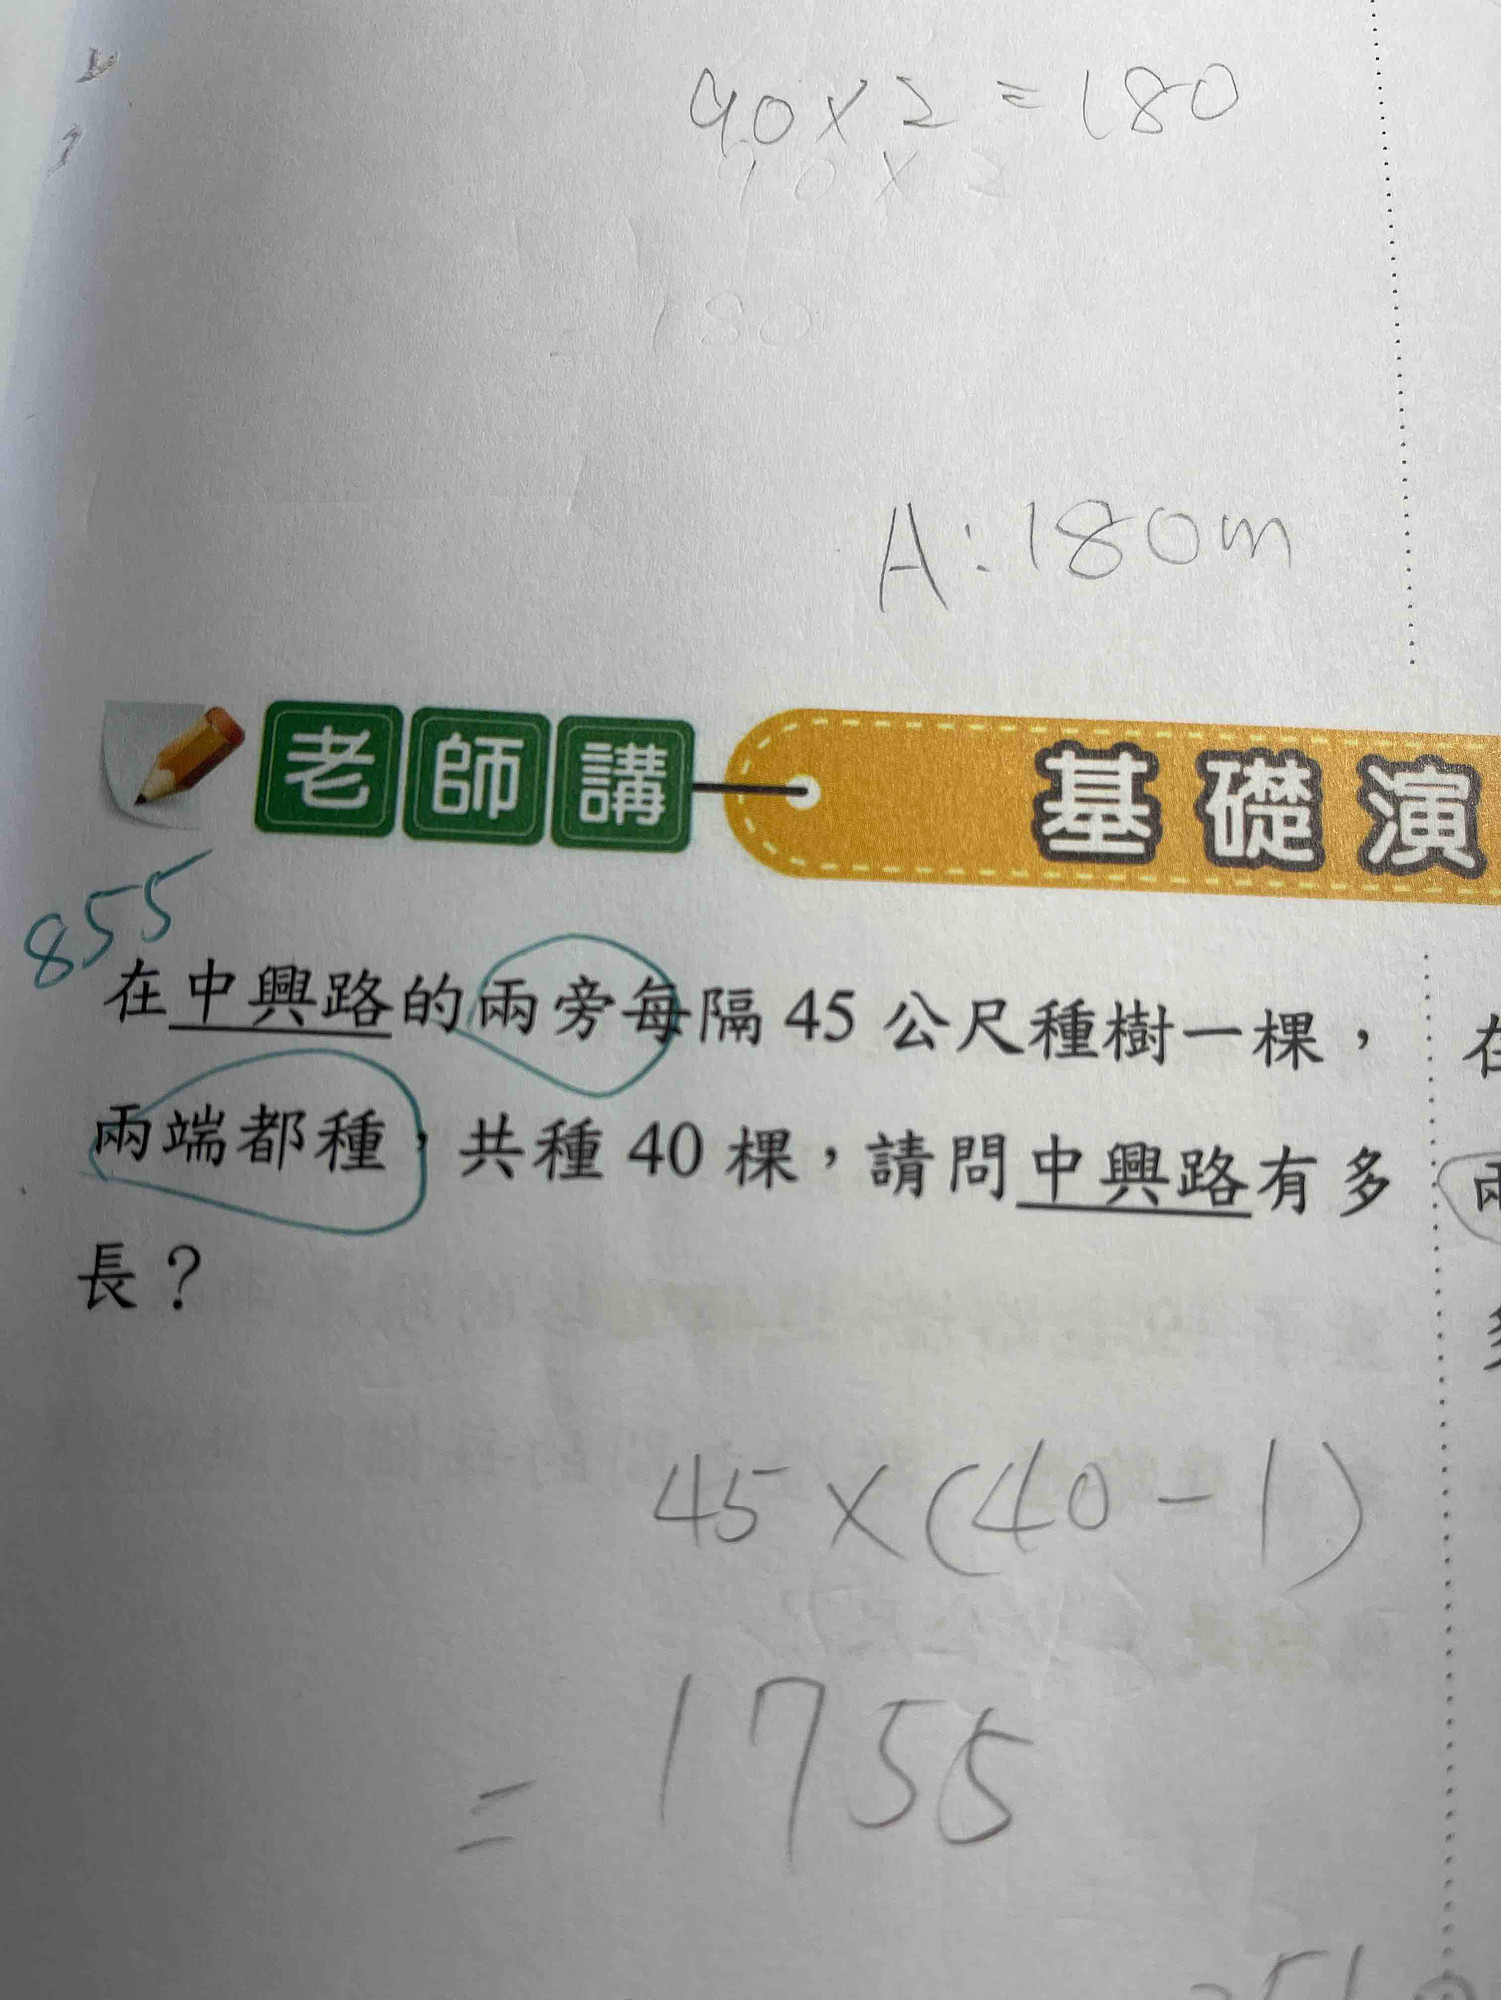 90×2=180
90×2
=180
A:180m
老師講 基礎演
855
在中興路的兩旁每隔 45 公尺種樹一棵，
兩端都種，共種 40 棵，請問中興路有多
長？
在
45×(40-1)
=1755